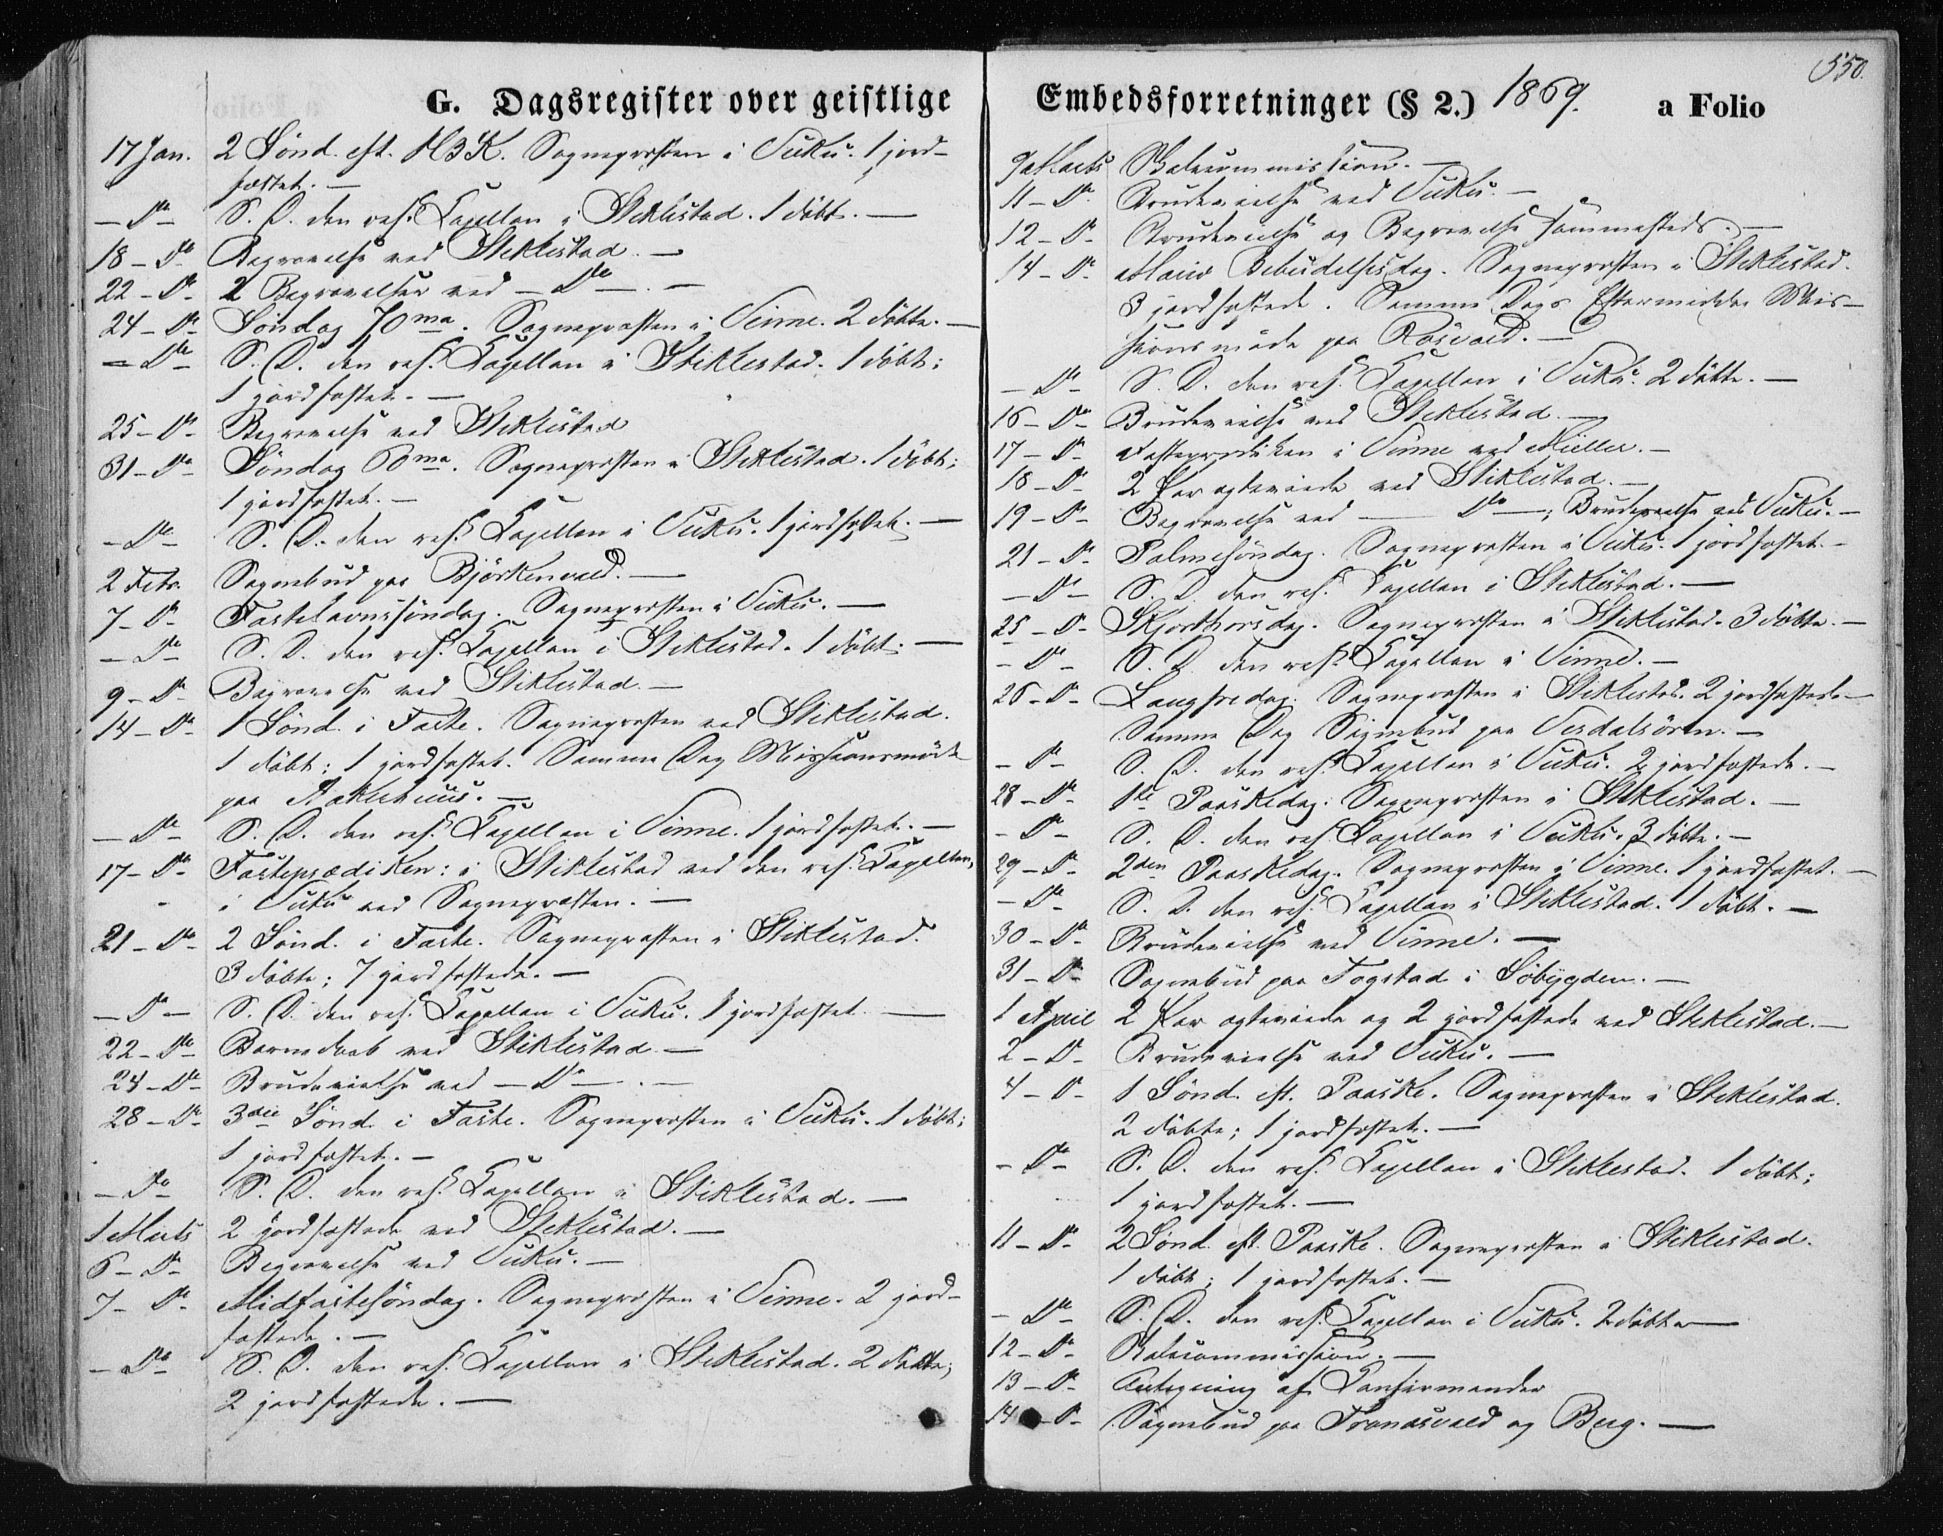 G. Dagsregister over geistlige
17 Jan. 2 Sønd. eft. H3K. Sognepræsten i Vuku. 1 jord-
fæstet. —
— Do S. D. den res. Capellan i Stiklestad. 1 döbt. —
18 - Do Begravelse ved Stiklestad. —
22 - Do 2 Begravelser ved — Do — . —
24 - Do Söndag 70ma. Sognepræsten i Vinne. 2 döbte. —
— Do S. D. den res. Capellan i Stiklestad. 1 döbt;
1 jordfæstet. —
25 - Do Begravelse ved Stiklestad
31 - Do Söndag 60ma. Sognepræsten i Stiklestad. 1 döbt;
1 jordfæstet. —
— Do S. D. den res. Capellan i Vuku. 1 jordfæstet. —
2 Febr. Sognebud paa Björkenvald. —
7 - Do Fastelavnssöndag. Sognepræsten i Vuku. —
— Do S. D. den res. Capellan i Stiklestad. 1 döbt. —
9 - Do Begravelse ved Stiklestad. —
14 - Do 1 Sønd. i Faste. Sognepræsten ved Stiklestad.
1 döbt; 1 jordfæstet. Samme Dag Missionsmöde
paa
— Do S. D. den res. Capellan i Vinne. 1 jordfæstet. —
17 - Do Fasteprædiken: i Stiklestad ved den res. Capellan,
i Vuku ved Sognepræsten. —
21 - Do 2 Sønd. i Faste. Sognepræsten i Stiklestad.
3 döbte; 7 jordfæstede. —
— Do — S. D. den res. Capellan i Vuku. 1 jordfæstet. —
22 - Do Barnedaab ved Stiklestad. —
24 - Do Brudevielse ved — Do — . —
28 - Do 3die Sønd. i Faste. Sognepræsten i Vuku. 1 döbt;
1 jordfæstet. —
— Do S. D. den res. Capellan i Stiklestad. —
1 Marts 2 jordfæstede ved Stiklestad. —
6 - Do Begravelse ved Vuku. —
7 - Do Midfastesöndag. Sognepræsten i Vinne. 2 jord-
fæstede. —
— Do S. D. den res. Capellan i Stiklestad. 2 döbte;
2 jordfæstede. —
Embedsforretninger (§ 2.) 1869. a Folio
550.
9 Marts Valcommission. —
11 - Do Brudevielse ved Vuku. —
12 - Do Brudevielse og Begravelse sammesteds. —
14 - Do Mariæ Bebudelsesdag. Sognepræsten i Stiklestad.
3 jordfæstede. Samme Dags Eftermiddag Mis-
sionsmöde paa Rosvold. —
— Do S. D. den res. Capellan i Vuku. 2 döbte. —
16 - Do Brudevielse ved Stiklestad. —
17 - Do Fasteprædiken i Vinne ved Müller. —
18 - Do 2 Par ægteviede ved Stiklestad. —
19 - Do Begravelse ved — Do —; Brudevielse ved Vuku. —
21 - Do Palmesöndag. Sognepræsten i Vuku. 1 jordfæstet. —
— Do S. D. den res. Capellan i Stiklestad. —
25 - Do Skjærthorsdag. Sognepræsten i Stiklestad. 3 döbte. —
— Do S. D. den res. Capellan i Vinne. —
26 - Do Langfredag. Sognepræsten i Stiklestad. 2 jordfæstede. —
Samme Dag Sognebud paa Verdalsören. —
— Do S. D. den res. Capellan i Vuku. 2 jordfæstede. —
28 - Do 1ste Paaskedag. Sognepræsten i Stiklestad. —
— Do S. D. den res. Capellan i Vuku. 3 döbte. —
29 - Do 2den Paaskedag. Sognepræsten i Vinne. 1 jordfæstet. —
— Do S. D. den res. Capellan i Stiklestad. 1 döbt. —
30 - Do Brudevielse ved Vinne. —
31 - Do Sognebud paa Fogstad i Söbygden. —
1 April 2 Par ægteviede og 2 jordfæstede ved Stiklestad. —
2 - Do Brudevielse ved Vuku. —
4 - Do 1 Sønd. eft. Paaske. Sognepræsten i Stiklestad.
2 döbte; 1 jordfæstet. —
— Do S. D. den res. Capellan i Stiklestad. 1 döbt;
1 jordfæstet. —
11 - Do 2 Sønd. eft. Paaske. Sognepræsten i Stiklestad.
1 döbt; 1 jordfæstet. —
— Do S. D. den res. Capellan i Vuku. 2 döbte —
12 - Do Valcommission. —
13 - Do Antegning af Confirmander
14 - Do Sognebud paa Tronæsvald og Berg. —